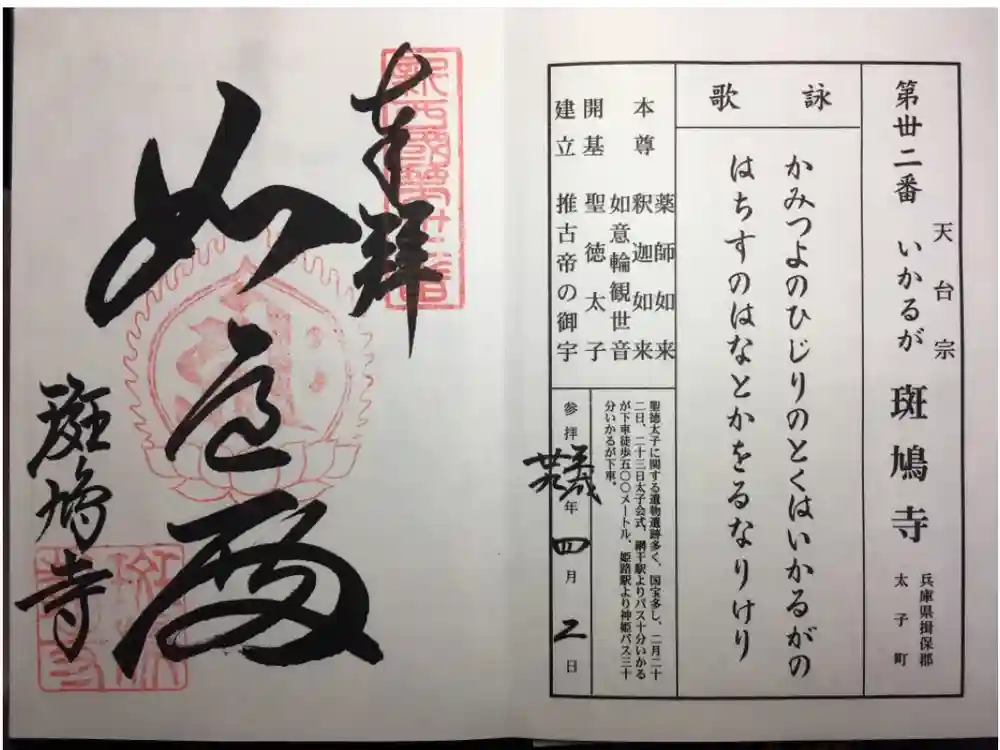 天台宗
第卅二番 いかるが 斑鳩寺
兵庫県揖保郡
太子町
詠歌
かみつよのひじりのとくはいかるがの
はちすのはなとかをるなりけり
本尊 薬師如来
釈迦如来
如意輪観世音
開基 聖徳太子
建立 推古帝の御宇
聖徳太子に関する遺物遺跡多く、国宝多し、二月二十
二日、二十三日太子会式、網干駅よりバス十分いかる
が下車徒歩五〇〇メートル、姫路駅より神姫バス三十
分いかるが下車。
参拝 平成 年 四月 二日
新西國第卅二番
奉拝
如意殿
斑鳩寺